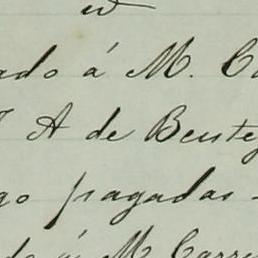 ado á M. Ca
A de Beute
go pagadas
do á M Carr